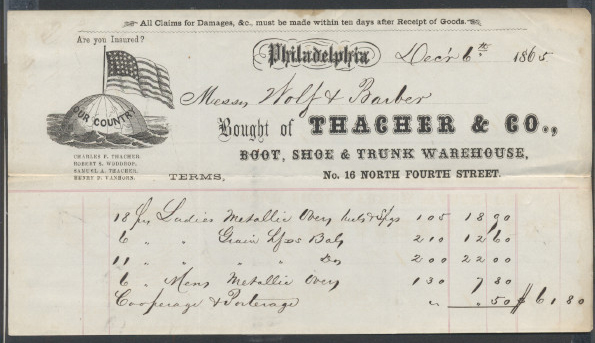 All Claims for Damages, &c., must be made within ten days after Receipt of Goods.
Are you Insured?
OUR COUNTRY
Philadelphia Decr 6th 1865
Messrs Wolf & Barber
Bought of THACHER & CO.,
BOOT, SHOE & TRUNK WAREHOUSE,
CHARLES F. THACHER,
ROBERT S. WODROP,
SAMUEL A. THACHER,
HENRY D. VANHORN.
TERMS, No. 16 NORTH FOURTH STREET.
18 prs Ladies Metallic Overs 105 18 90
6 " " Grain Bals 210 12 60
11 " " " " Do 200 22 00
6 " Mens Metallic Overs 130 7 80
Cooperage & Porterage " " 50 $61.80